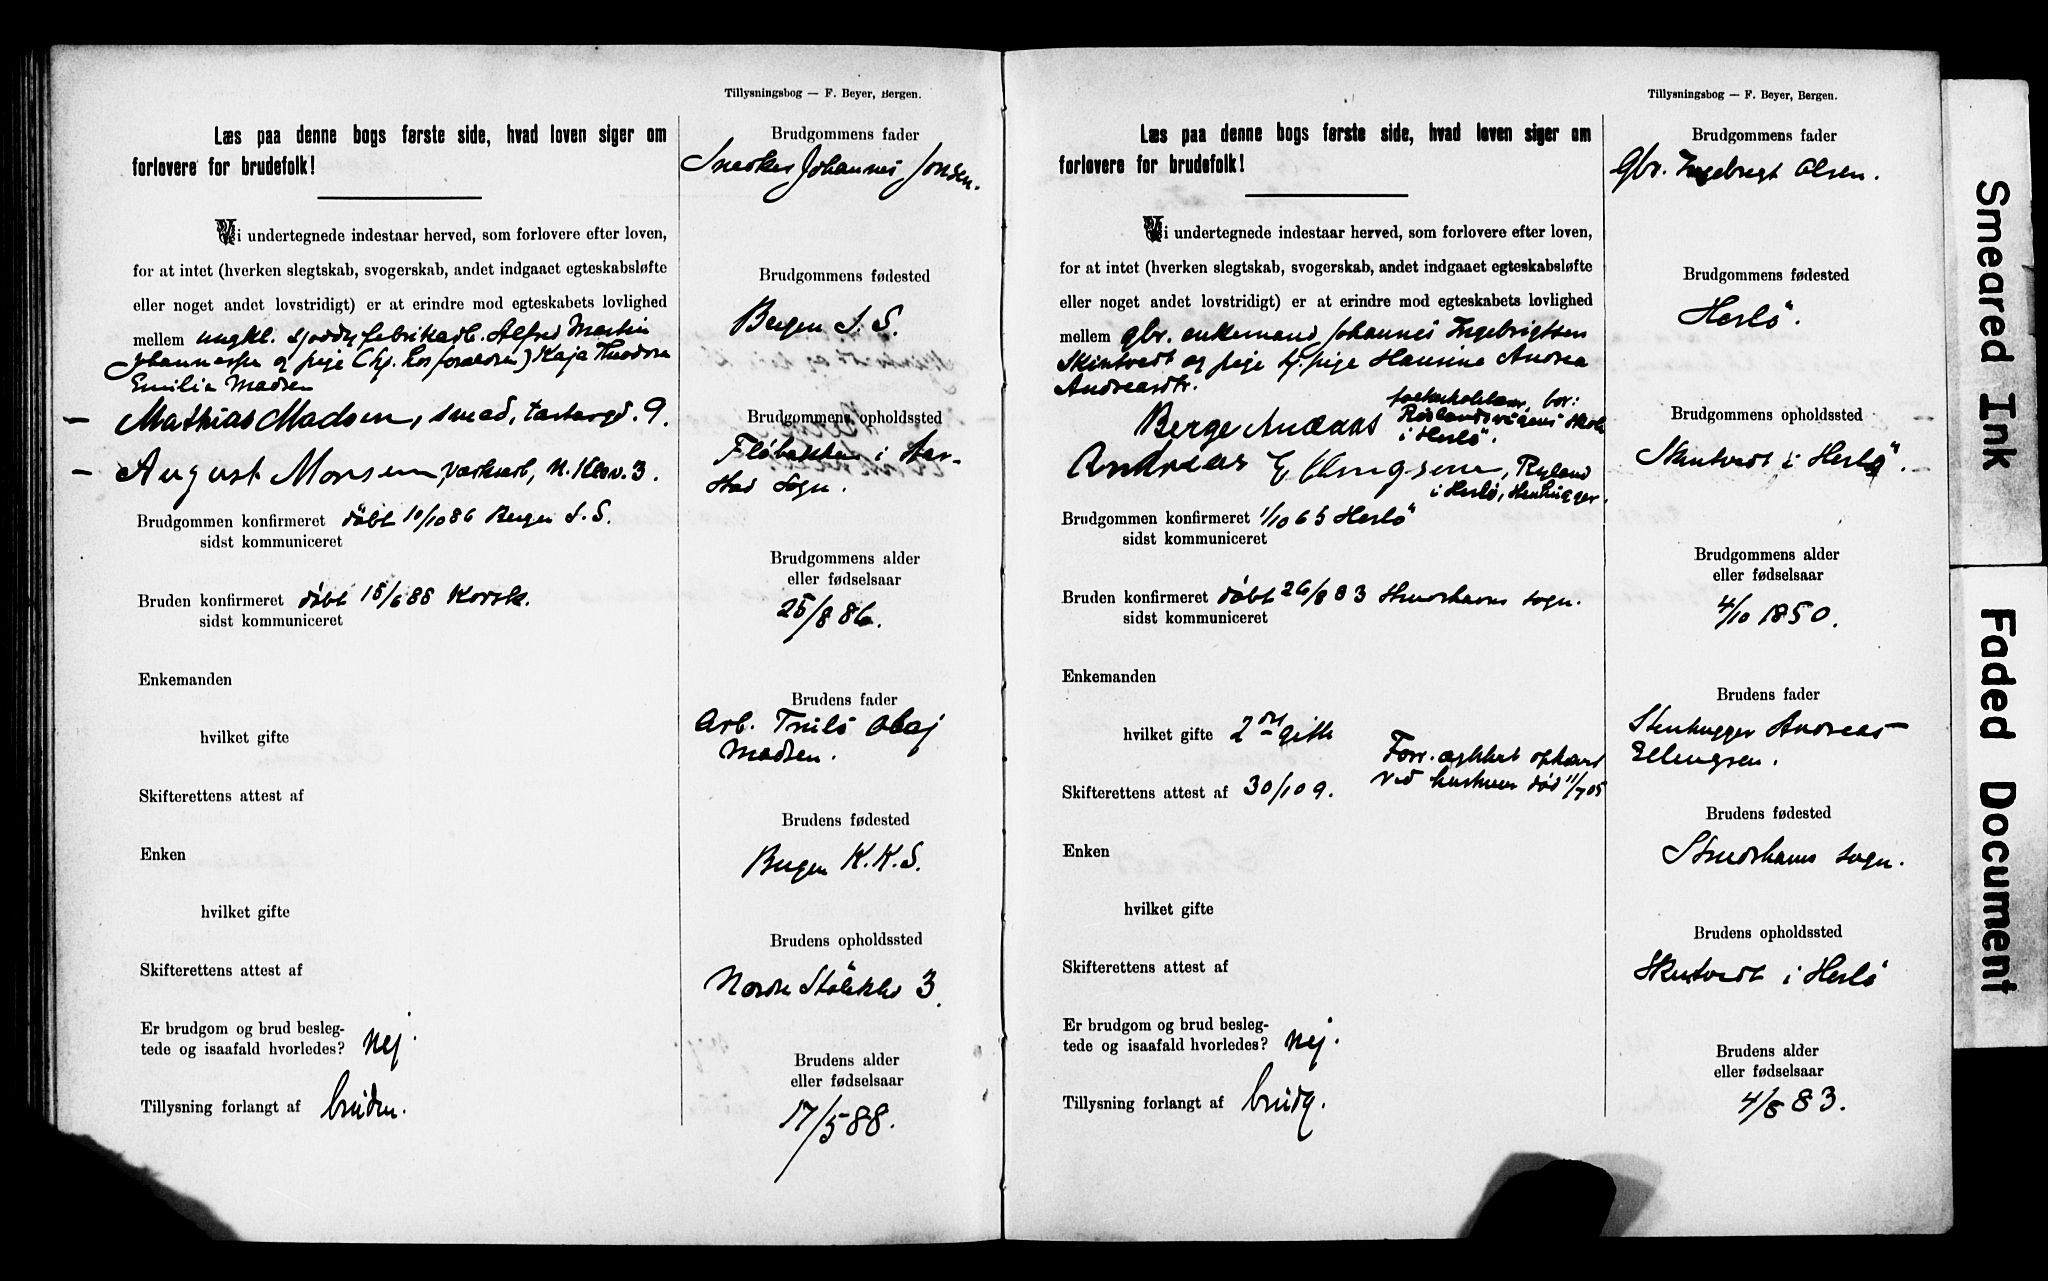 Tillysningsbog — F. Beyer, Bergen.
Læs paa denne bogs første side, hvad loven siger om
forlovere for brudefolk!
Vi undertegnede indestaar herved, som forlovere efter loven,
for at intet (hverken slegtskab, svogerskab, andet indgaaet egteskabsløfte
eller noget andet lovstridigt) er at erindre mod egteskabets lovlighed
mellem ungkl. sjoddyfabrikarb. Alfred Martin
Johannesen og pige (hj. hos forældren) Kaja Theodora
Emilie Madsen
— Mathias Madsen, smed, 9.
— August Monsen, N. 3.
Brudgommen konfirmeret døbt 10/10 86 Bergen S. S.
sidst kommuniceret
Bruden konfirmeret døbt 15/6 88 Korsk.
sidst kommuniceret
Enkemanden
hvilket gifte
Skifterettens attest af
Enken
hvilket gifte
Skifterettens attest af
Er brudgom og brud besleg-
tede og isaafald hvorledes? nej.
Tillysning forlangt af bruden.
Brudgommens fader
Snedker Johannes Jonsen.
Brudgommens fødested
Bergen S. S.
Brudgommens opholdssted
Fløbakken i Aar-
stad sogn.
Brudgommens alder
eller fødselsaar
25/8 86.
Brudens fader
Arb. Truls Olaj
Madsen.
Brudens fødested
Bergen K. K. S.
Brudens opholdssted
Nordre 3.
Brudens alder
eller fødselsaar
17/5 88.
Tillysningsbog — F. Beyer, Bergen.
Læs paa denne bogs første side, hvad loven siger om
forlovere for brudefolk!
Vi undertegnede indestaar herved, som forlovere efter loven,
for at intet (hverken slegtskab, svogerskab, andet indgaaet egteskabsløfte
eller noget andet lovstridigt) er at erindre mod egteskabets lovlighed
mellem gbr. enkemand Johannes Ingebrigtsen
Skintvedt og pige tj. pige Hansine Andrea
Andreasdtr.
Berge bor:
i Herlø.
Andreas Ellingsen, Ryland
i Herlø, Stenhugger.
Brudgommen konfirmeret 1/10 65 Herlø
sidst kommuniceret
Bruden konfirmeret døbt 26/8 83 Strudshavns sogn.
sidst kommuniceret
Enkemanden
hvilket gifte 2det gifte
Forr. ægtskab ophævet
ved hustruens død 11/7 05
Skifterettens attest af 30/10 9.
Enken
hvilket gifte
Skifterettens attest af
Er brudgom og brud besleg-
tede og isaafald hvorledes? nej.
Tillysning forlangt af brudg.
Brudgommens fader
Gbr. Ingebregt Olsen.
Brudgommens fødested
Herlø.
Brudgommens opholdssted
Skintvedt i Herlø.
Brudgommens alder
eller fødselsaar
4/10 1850.
Brudens fader
Stenhugger Andreas
Ellingsen.
Brudens fødested
Strudshavns sogn.
Brudens opholdssted
Skintvedt i Herlø
Brudens alder
eller fødselsaar
4/8 83.
Smeared Ink
Faded Document